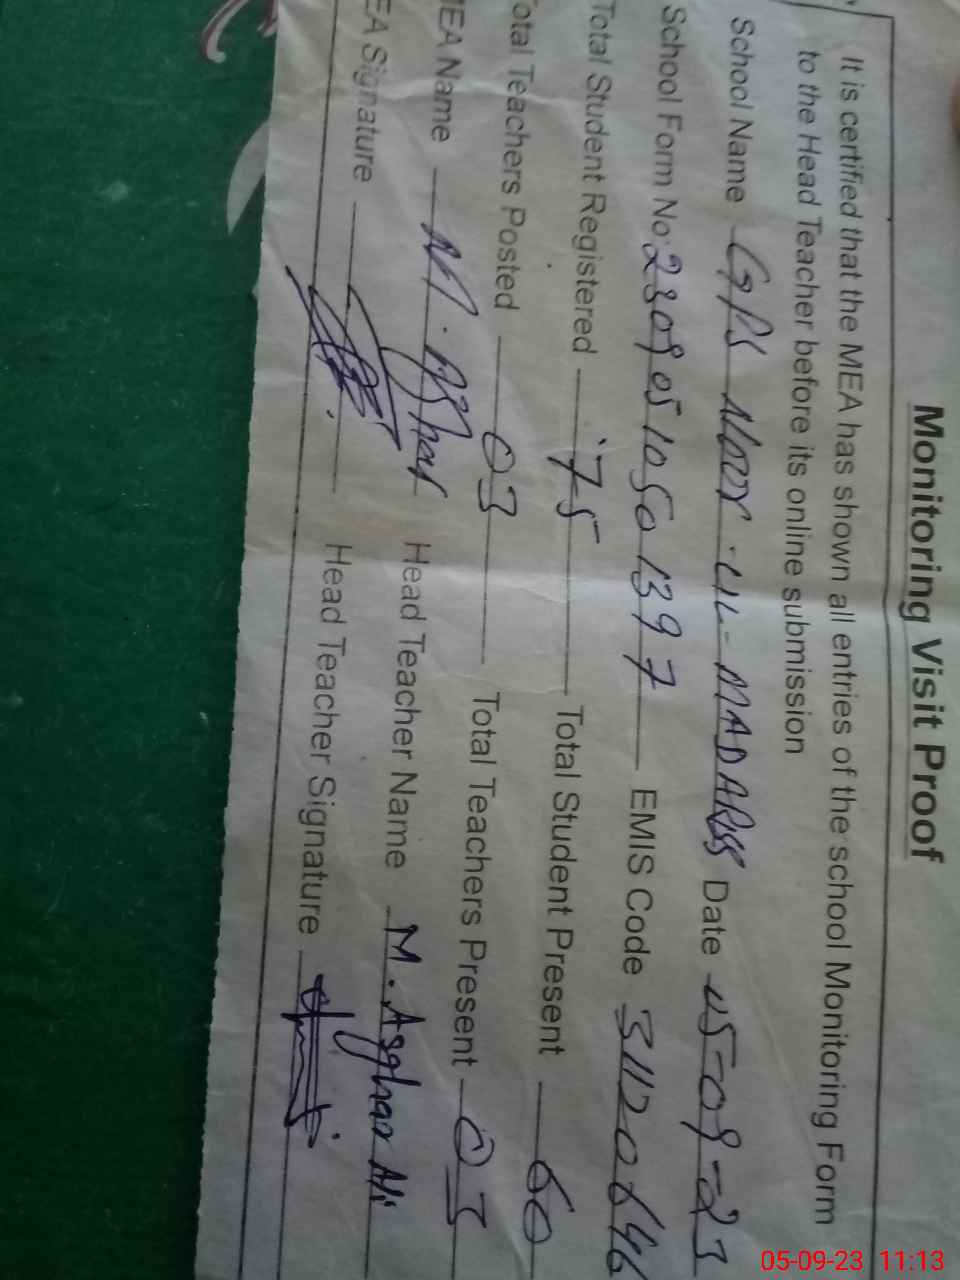 Monitoring Visit Proof
It is certified that the MEA has shown all entries of the school Monitoring Form
to the Head Teacher before its online submission
School Name GPS Noor-UL-MADARISS Date 05-09-23
School Form No: 23090510501397 EMIS Code 31120646
Total Student Registered 75 Total Student Present 60
Total Teachers Posted 03 Total Teachers Present 03
MEA Name M. Head Teacher Name M. Asghar Ali
EA Signature Head Teacher Signature
05-09-23 11:13